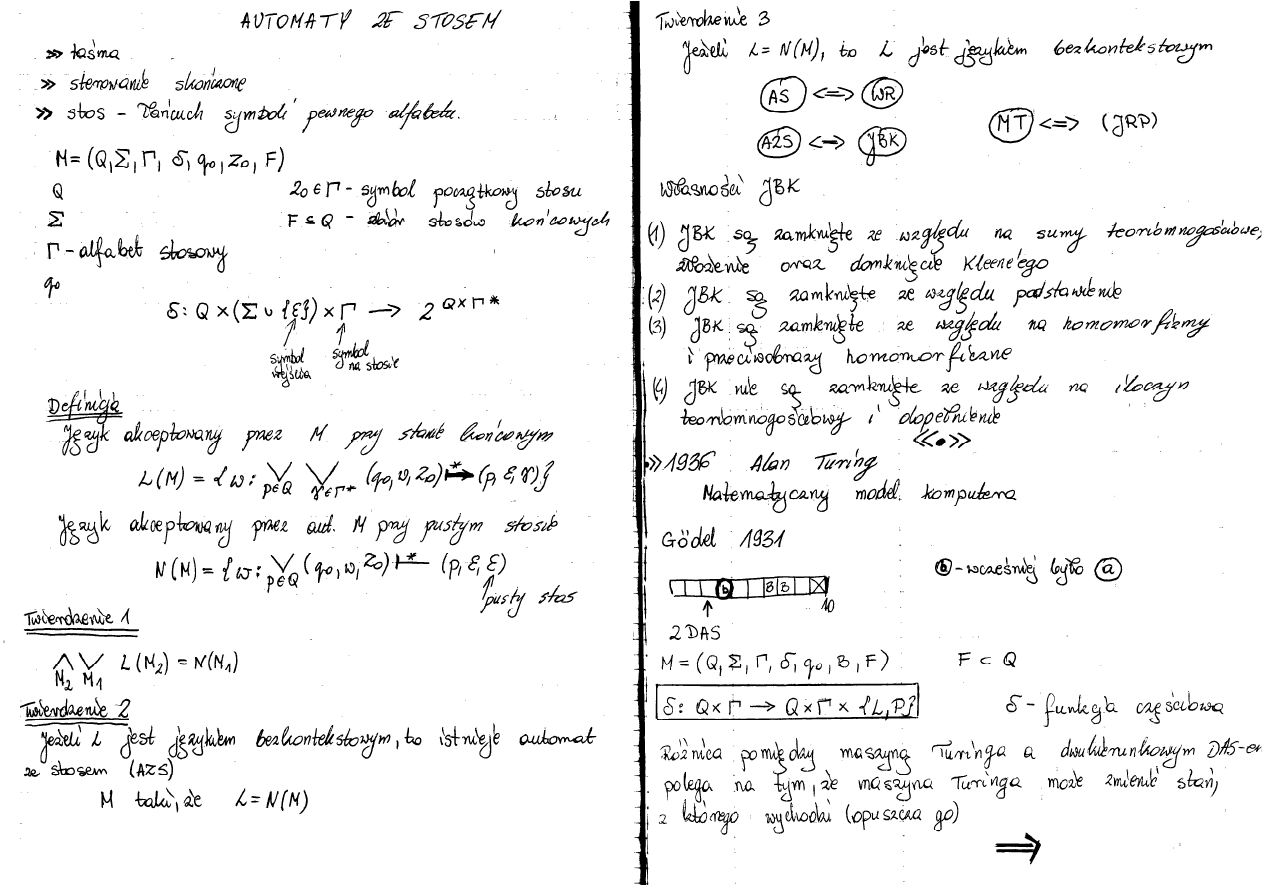 AUTOMATY ZE STOSEM
» taśma
» sterowanie skończone
» stos - łańcuch symboli pewnego alfabetu.
M = (Q, Σ, Γ, δ, q₀, Z₀, F)
Q
Z₀ ∈ Γ - symbol początkowy stosu
Σ
F ⊆ Q - zbiór stosów końcowych
Γ - alfabet stosowy
q₀
δ: Q × (Σ ∪ {ε}) × Γ → 2^(Q×Γ*)
symbol wejścia
symbol na stosie
Definicja
Język akceptowany przez M przy stanie końcowym
L(M) = { w : ⋁_{p∈Q} ⋁_{γ∈Γ*} (q₀, w, Z₀) ⊢* (p, ε, γ)}
Język akceptowany przez aut. M przy pustym stosie
N(M) = { w : ⋁_{p∈Q} (q₀, w, Z₀) ⊢* (p, ε, ε)
pusty stos
Twierdzenie 1
⋀_{M₂} ⋁_{M₁} L(M₂) = N(M₁)
Twierdzenie 2
Jeżeli L jest językiem bezkontekstowym, to istnieje automat
ze stosem (AZS)
M taki, że L = N(M)
Twierdzenie 3
Jeżeli L = N(M), to L jest językiem bezkontekstowym
AS <=> WR
MT <=> (JRP)
AZS <=> JBK
Własności JBK
(1) JBK są zamknięte ze względu na sumy teoriomnogościowe,
złożenie oraz domknięcie Kleene'ego
(2) JBK są zamknięte ze względu podstawienie
(3) JBK są zamknięte ze względu na homomorfizmy
i przeciwobrazy homomorficzne
(4) JBK nie są zamknięte ze względu na iloczyn
teoriomnogościowy i dopełnienie
«•»
» 1936 Alan Turing
Matematyczny model. komputera
Gödel 1931
b B B
b - wcześniej było a
2 DAS
M = (Q, Σ, Γ, δ, q₀, B, F) F ⊂ Q
δ: Q × Γ → Q × Γ × {L, P}
δ - funkcja częściowa
Różnica pomiędzy maszyną Turinga a dwukierunkowym DAS-em
polega na tym, że maszyna Turinga może zmienić stan,
z którego wychodzi (opuszcza go)
⇒